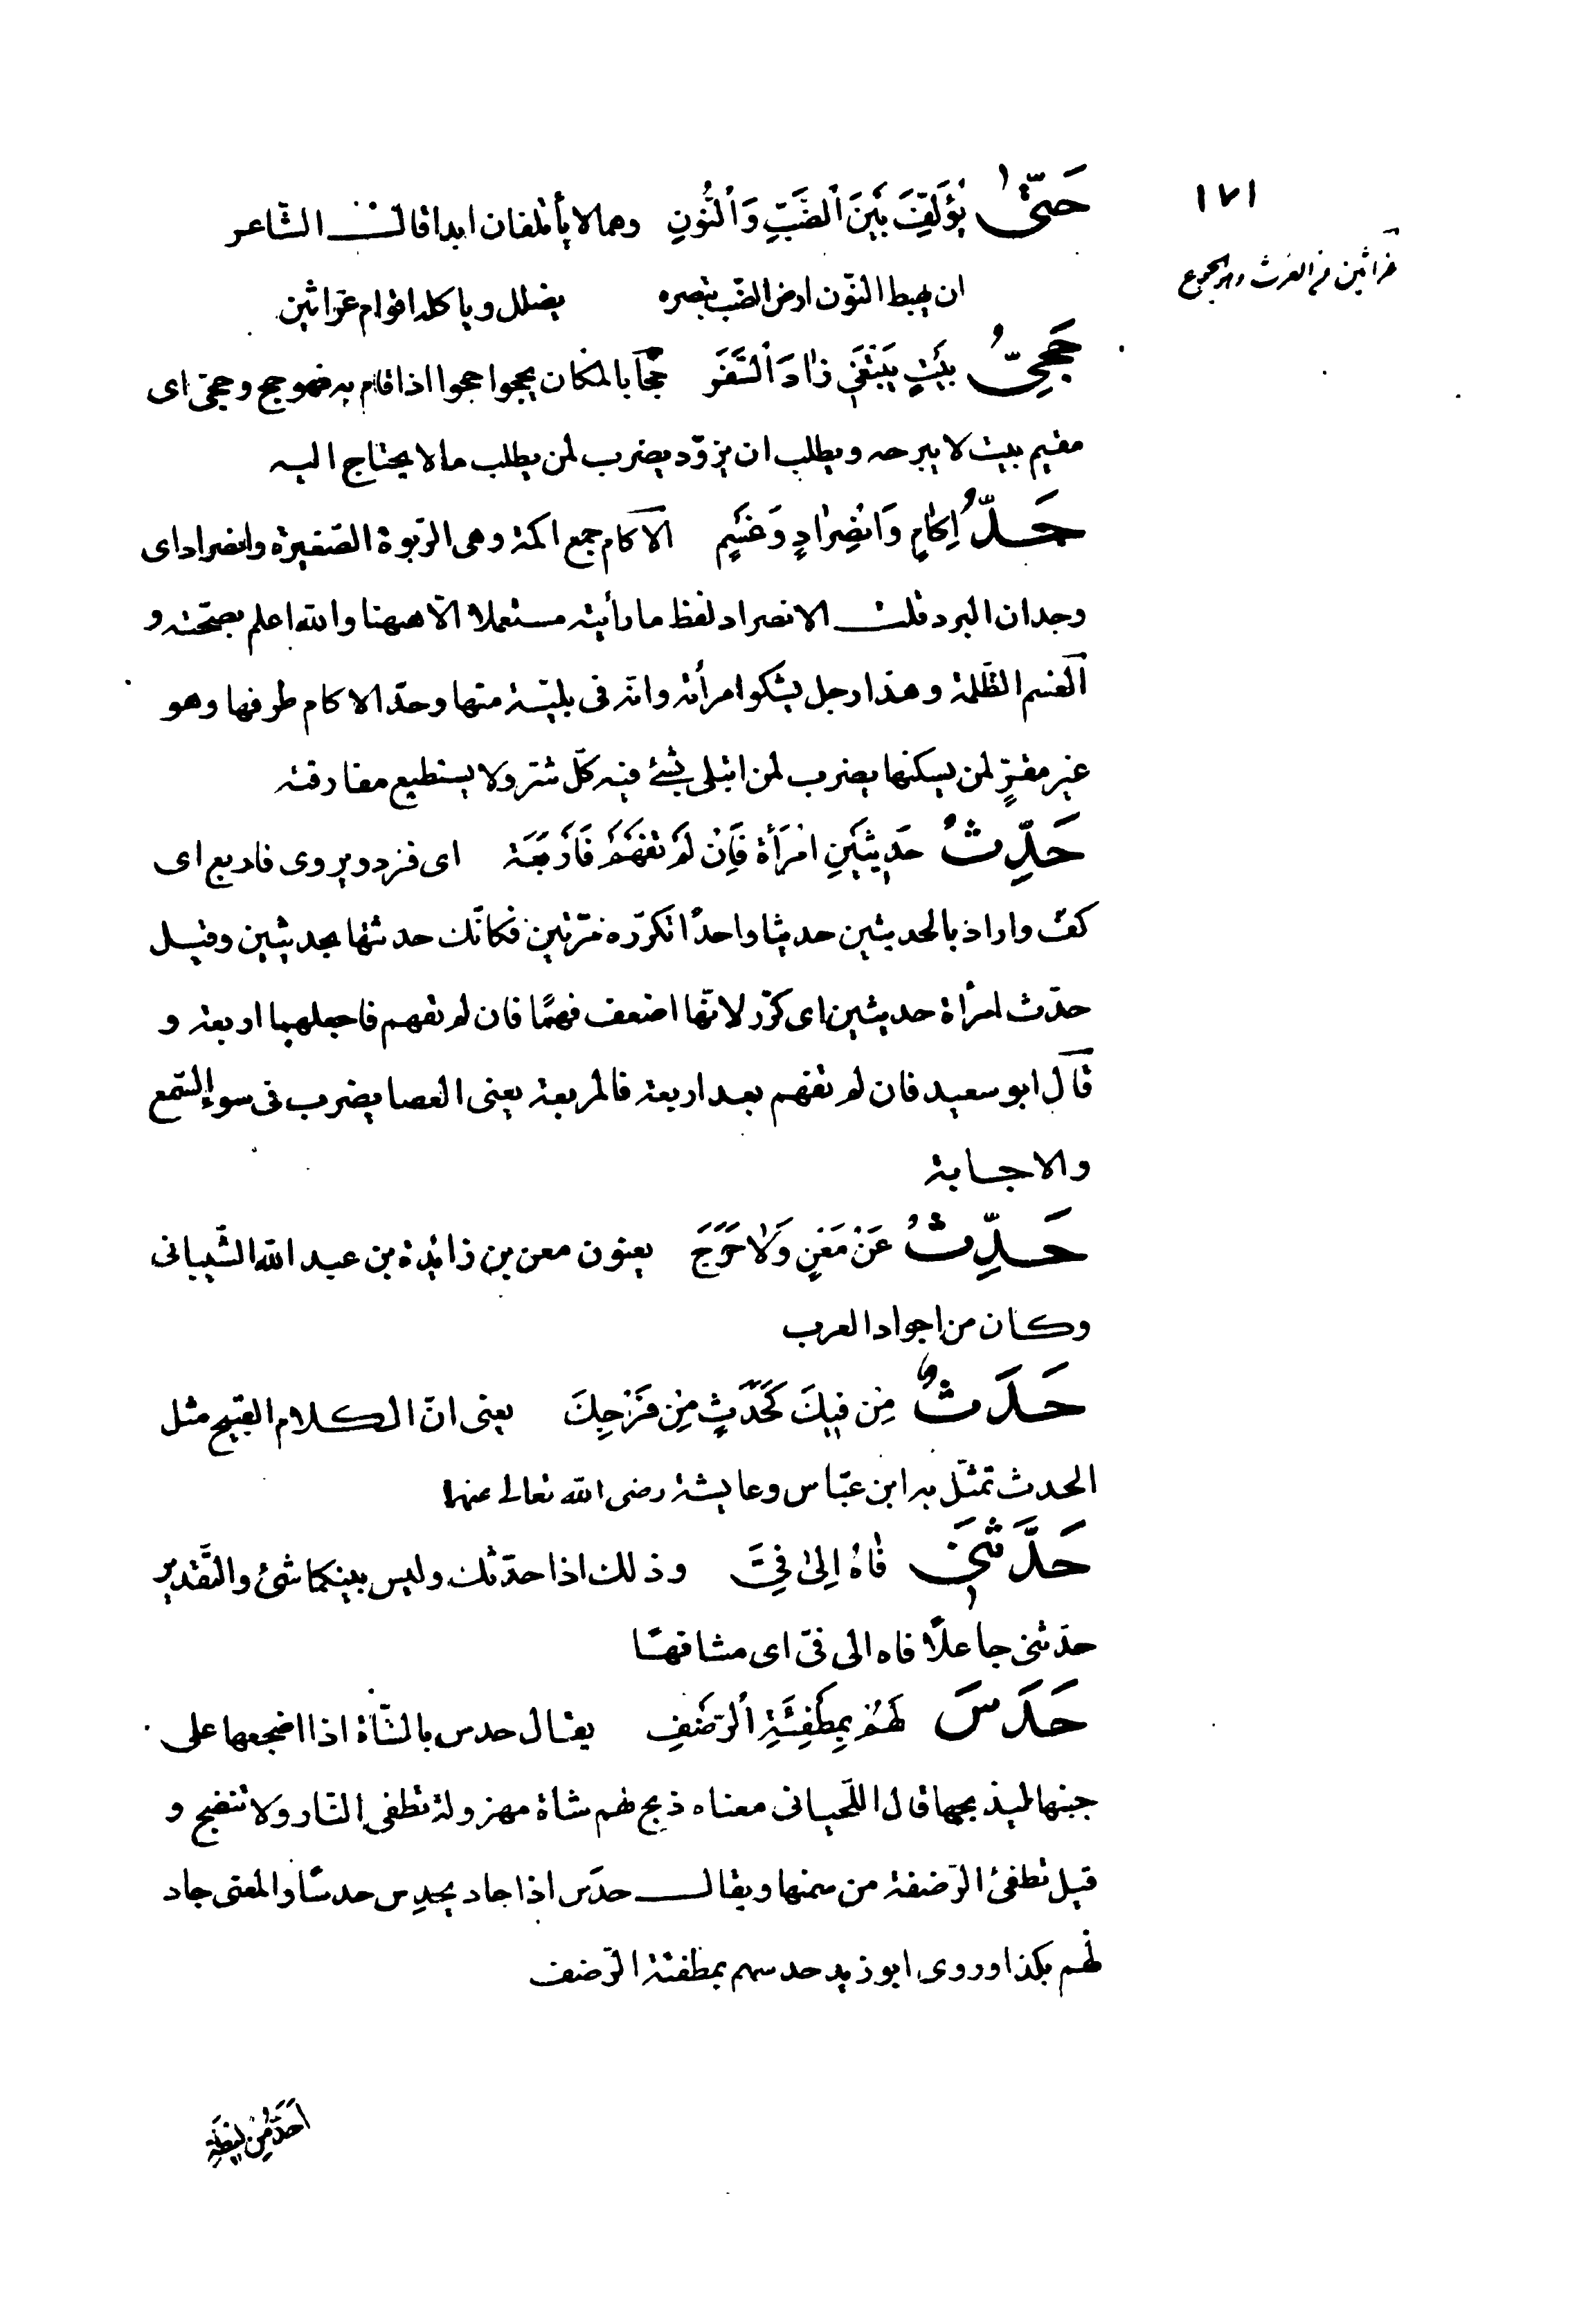 ١٧١
غراثين من الغرث وهو الجوع
حَتّىٰ يُؤَلَّفَ بَيْنَ الضَّبِّ وَالنُّونِ وهما لا يأتلفان ابدا قالت الشّاعر
ان يهبط النّون ارض الضّب ينصره يضلل وياكله اقوام غراثين
حَجِيُّ بَيْتٍ يَبْتَغِي زٰادَ السَّفَرِ حجا بالمكان يحجوا حجوا اذا قام به فهو حج وحجيّ اى
مقيم ببيت لا يبرحه ويطلب ان يزوّد يضرب لمن يطلب ما لا يحتاج اليه
حَدُّ اِكٰامٍ وَانْصِرٰادٍ وَغَسَمٍ الآكام جمع اكمة وهى الرّبوة الصّغيرة وانصراد اى
وجدان البرد قلت الانصراد لفظ ما رأيته مستعملا الّا ههنا والله اعلم بصحّته و
الغسم الظّلمة وهذا رجل يشكو امرأته وانّه فى بليّة منها وحدّ الاكام طرفها وهو
غير مقرٍّ لمن يسكنها يضرب لمن ابتلى بشئ فيه كلّ شرّ ولا يستطيع مفارقته
حَدِّثْ حَدِيثَيْنِ امْرَأَة فَاِنْ لَمْ تَفْهَمْ فَاَرْبَعَة اى فزد ويروى فاربع اى
كفّ واراد بالحديثين حديثا واحدًا تكرّره مرّتين فكانّك حدثتها بحديثين وقيل
حدّث امرأة حديثين اى كرّر لانّها اضعف فهمًا فان لم تفهم فاجعلهما اربعة و
قال ابو سعيد فان لم تفهم بعد اربعة فالمربعة يعنى العصا يضرب فى سوء السّمع
والاجابة
حَدِّثْ عَنْ مَعْنٍ وَلٰا حَرَجَ يعنون معن بن زائدة بن عبد الله الشّيبانى
وكان من اجواد العرب
حَدَثٌ مِنْ فِيكَ كَحَدَثٍ مِنْ فَرْجِكَ يعنى انّ الكلام القبيح مثل
الحدث تمثّل به ابن عبّاس وعايشة رضى الله تعالى عنهما
حَدَّثَنِي فٰاهُ اِلىٰ فِيَّ وذلك اذا حدّثك وليس بينكما شئ والتّقدير
حدّثنى جاعلًا فاه الى فىّ اى مشافهًا
حَدَسَ لَهُمْ بِمُطْفِئَةِ الرَّضْفِ يقال حدس بالشّاة اذا اضجعها على
جنبها ليذبحها قال اللّحيانى معناه ذبح لهم شاة مهزولة تطفى النّار ولا تنضج و
قيل تطفئ الرّضفة من سمنها ويقال حدَس اذا جاد يحدِس حدسًا والمعنى جاد
لهم بكذا وروى ابو زيد حدسهم بمطفئة الرّضف
اَحَدُّ مِنْ لِيطَةٍ